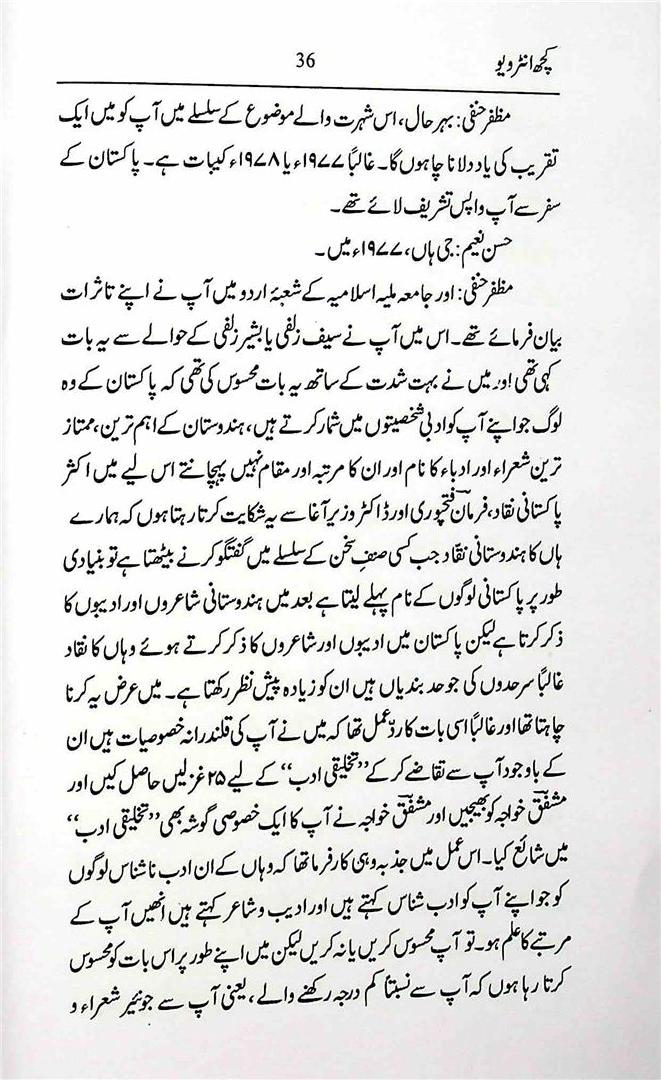 کچھ انٹرویو
36
مظفر حنفی: بہر حال، اس شہرت والے موضوع کے سلسلے میں آپ کو میں ایک
تقریب کی یاد دلانا چاہوں گا۔ غالباً ۱۹۷۷ء یا ۱۹۷۸ء کی بات ہے۔ پاکستان کے
سفر سے آپ واپس تشریف لائے تھے۔
حسن نعیم: جی ہاں، ۱۹۷۷ء میں۔
مظفر حنفی: اور جامعہ ملیہ اسلامیہ کے شعبۂ اردو میں آپ نے اپنے تاثرات
بیان فرمائے تھے۔ اس میں آپ نے سیف زلفی یا بشیر زلفی کے حوالے سے یہ بات
کہی تھی! اور میں نے بہت شدت کے ساتھ یہ بات محسوس کی تھی کہ پاکستان کے وہ
لوگ جو اپنے آپ کو ادبی شخصیتوں میں شمار کرتے ہیں، ہندوستان کے اہم ترین، ممتاز
ترین شعراء اور ادباء کا نام اور ان کا مرتبہ اور مقام نہیں پہچانتے اس لیے میں اکثر
پاکستانی نقاد، فرمان فتحپوری اور ڈاکٹر وزیر آغا سے یہ شکایت کرتا رہتا ہوں کہ ہمارے
ہاں کا ہندوستانی نقّاد جب کسی صنفِ سخن کے سلسلے میں گفتگو کرنے بیٹھتا ہے تو بنیادی
طور پر پاکستانی لوگوں کے نام پہلے لیتا ہے بعد میں ہندوستانی شاعروں اور ادیبوں کا
ذکر کرتا ہے لیکن پاکستان میں ادیبوں اور شاعروں کا ذکر کرتے ہوئے وہاں کا نقاد
غالباً سرحدوں کی جو حد بندیاں ہیں ان کو زیادہ پیش نظر رکھتا ہے۔ میں عرض یہ کرنا
چاہتا تھا اور غالباً اسی بات کا ردّ عمل تھا کہ میں نے آپ کی قلندرانہ خصوصیات ہیں ان
کے باوجود آپ سے تقاضے کر کے ”تخلیقی ادب“ کے لیے ۲۵ غزلیں حاصل کیں اور
مشفق خواجہ کو بھیجیں اور مشفق خواجہ نے آپ کا ایک خصوصی گوشہ بھی ”تخلیقی ادب“
میں شائع کیا۔ اس عمل میں جذبہ وہی کارفرما تھا کہ وہاں کے ان ادب ناشناس لوگوں
کو جو اپنے آپ کو ادب شناس کہتے ہیں اور ادیب و شاعر کہتے ہیں انھیں آپ کے
مرتبے کا علم ہو۔ تو آپ محسوس کریں یا نہ کریں لیکن میں اپنے طور پر اس بات کو محسوس
کرتا رہا ہوں کہ آپ سے نسبتاً کم درجہ رکھنے والے، یعنی آپ سے جونئیر شعراء و